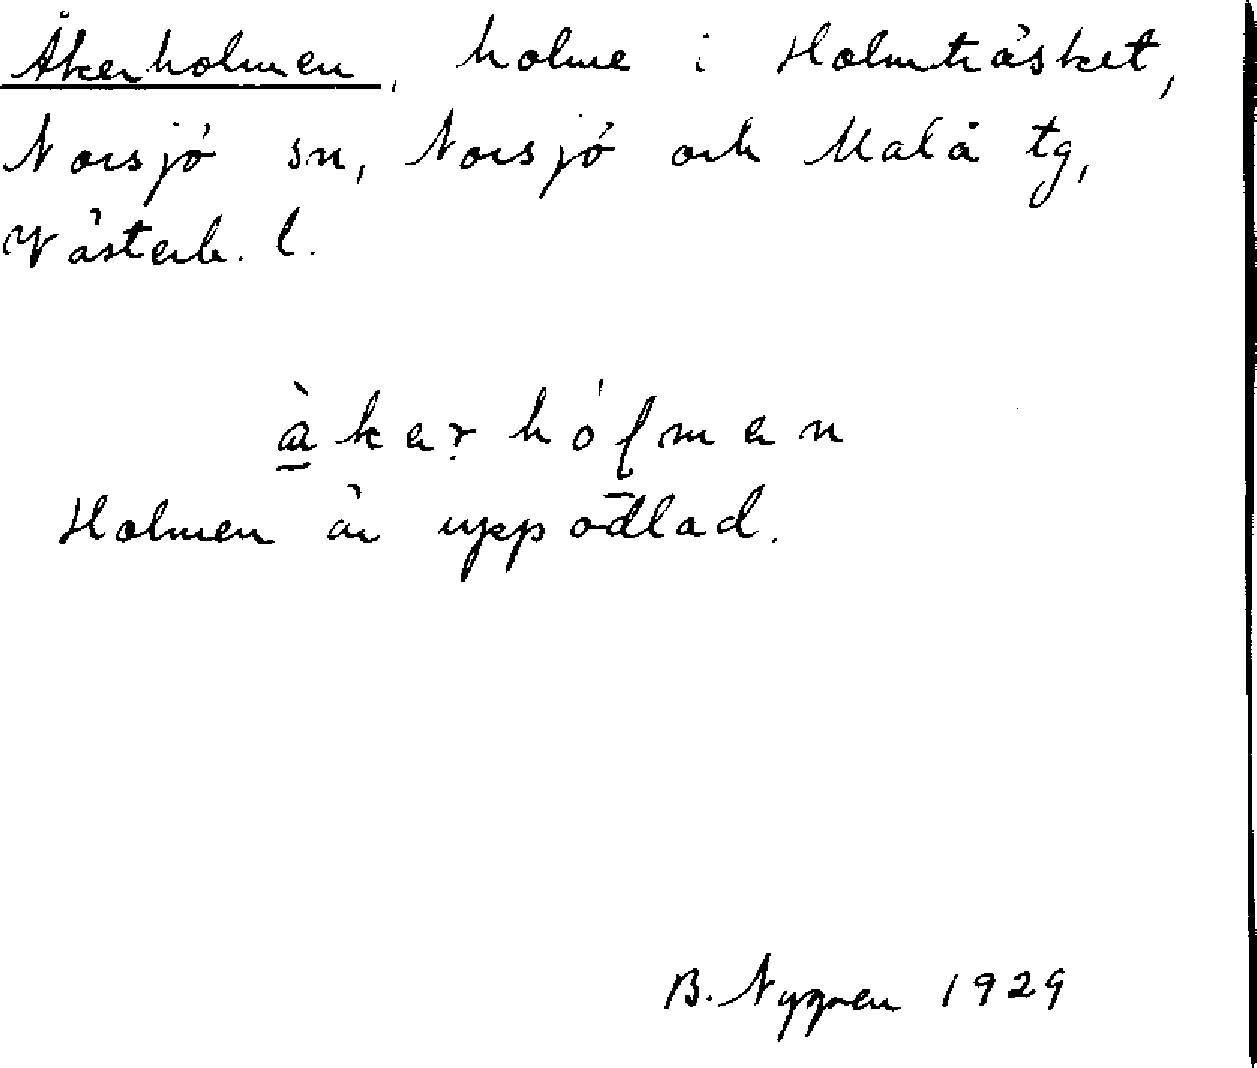 Åkerholmen, holme i Holmträsket,
Norsjö sn, Norsjö och Malå tg,
Västerb. l.
Holmen är uppodlad.
B. Nygren 1929